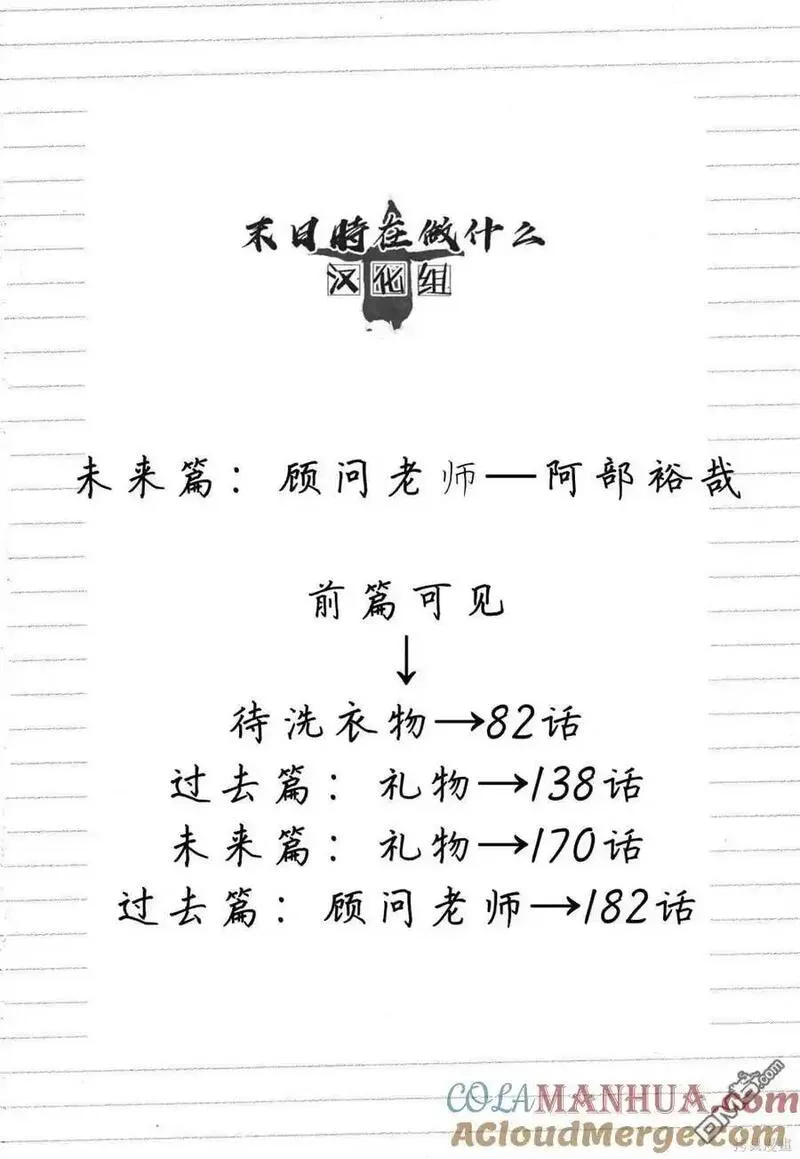 末日時在做什么
汉化组
未来篇：顾问老师—阿部裕哉
前篇可见
↓
待洗衣物→82话
过去篇：礼物→138话
未来篇：礼物→170话
过去篇：顾问老师→182话
COLAMANHUA.com
ACloudMerge.com